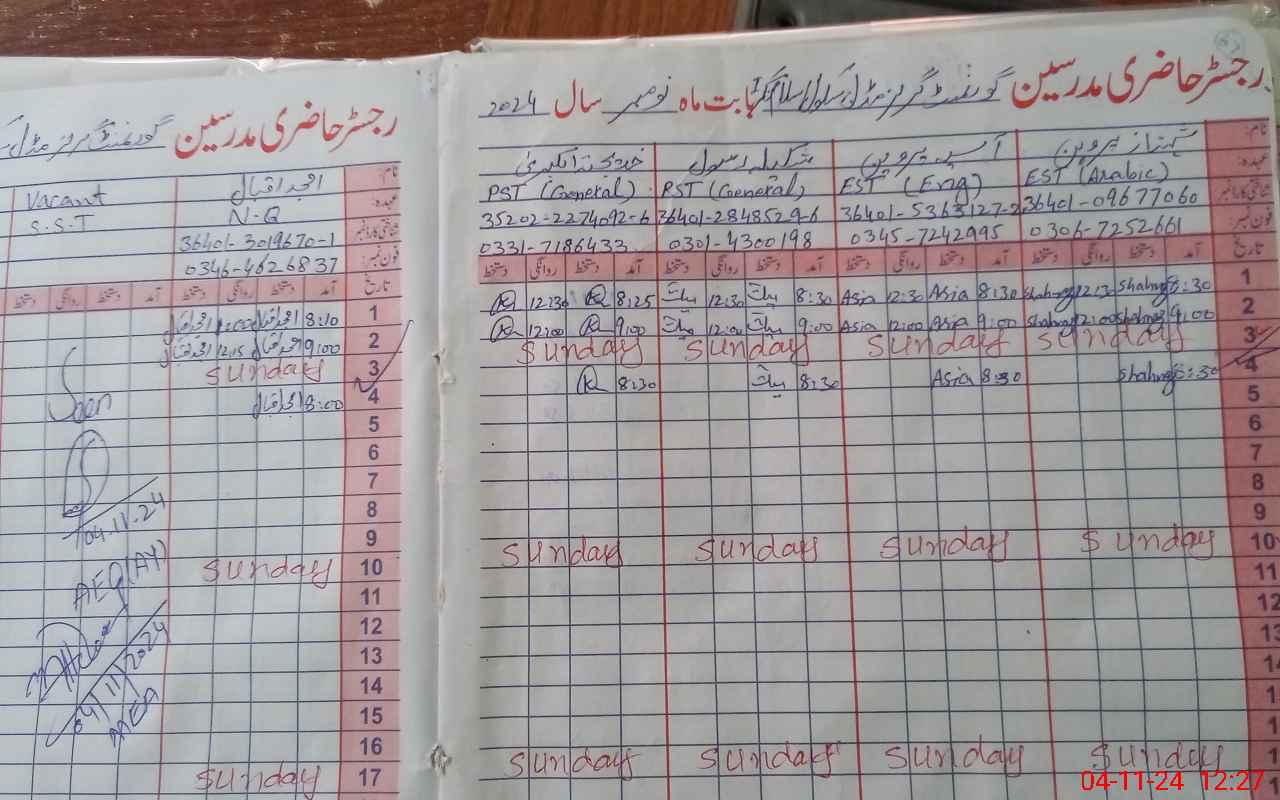 رجسٹر حاضری مدرسین گورنمنٹ گرلز مڈل سکول اسلام بابت ماہ نومبر سال 2024
نام: شہناز پروین آسیہ پروین شکیلہ رسول خدیجۃ الکبریٰ
عہدہ: EST (Arabic) EST (Eng) PST (General) PST (General)
شناختی کارڈ نمبر 36401-0967706 0 36401-5363127-2 36401-2848529-6 35202-2274092-6
فون نمبر: 0306-7252661 0345-7242995 0301-4300198 0331-7186433
تاریخ آمد دستخط روانگی دستخط آمد دستخط روانگی دستخط آمد دستخط روانگی دستخط آمد دستخط روانگی دستخط
1 8:30 Shahnaz 12:30 Shahnaz 8:30 Asia 12:30 Asia 8:30 12:30 8:25 K 12:30 K
2 9:00 Shahnaz 12:00 Shahnaz 9:00 Asia 12:00 Asia 9:00 12:00 9:00 K 12:00 K
3 Sunday Sunday Sunday Sunday
4 8:30 Shahnaz 8:30 Asia 8:30 8:30 K
5
6
7
8
9
10 Sunday Sunday Sunday Sunday
11
12
Sunday Sunday Sunday Sunday
رجسٹر حاضری مدرسین گورنمنٹ گرلز مڈل
نام: امجد اقبال Vacant
عہدہ: N-Q S.S.T
شناختی کارڈ نمبر 36401-3019670-1
فون نمبر: 0346-4626837
تاریخ آمد دستخط روانگی دستخط آمد دستخط روانگی دستخط
1 8:10 امجد اقبال امجد اقبال
2 9:00 امجد اقبال 12:15 امجد اقبال
3 Sunday
4 8:00 امجد اقبال
5
6
7
8
9
10 Sunday
11
12
13
14
15
16
17 Sunday
Seen
04.11.24
AEO(AY)
04/11/2024
MEA
04-11-24 12:27